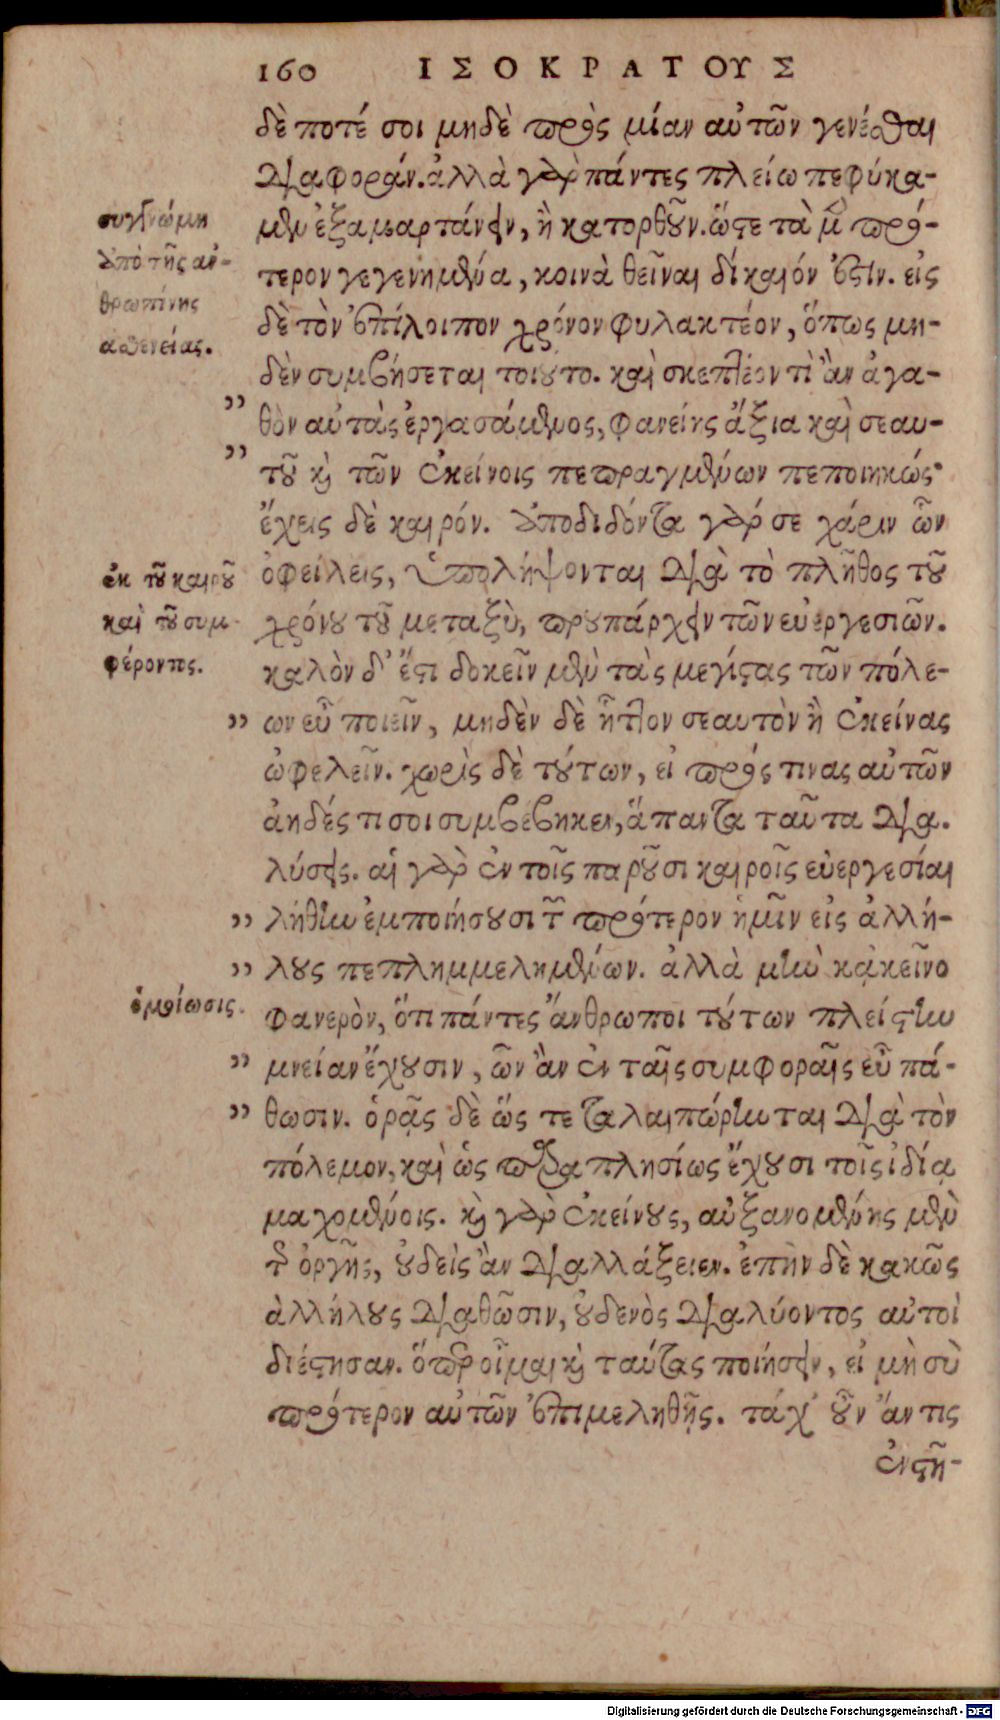 160 ΙΣΟΚΡΑΤΟΥΣ
δὲ ποτέ σοι μηδὲ πρὸς μίαν αὐτῶν γενέσθαι
διαφοράν. ἀλλὰ γὰρ πάντες πλείω πεφύκα-
μεν ἐξαμαρτάνειν, ἢ κατορθοῦν. ὥςτε τὰ μ̃ πρό-
τερον γεγενημένα, κοινὰ θεῖναι δίκαιόν ἐστιν. εἰς
δὲ τὸν ἐπίλοιπον χρόνον φυλακτέον, ὅπως μη-
δὲν συμβήσεται τοιοῦτο. καὶ σκεπτέον τὶ ἂν ἀγα-
θὸν αὐτὰς ἐργασάμενος, φανείης ἄξια καὶ σεαυ-
τοῦ καὶ τῶν ἐκείνοις πεπραγμένων πεποιηκώς·
ἔχεις δὲ καιρόν. ἀποδιδόντα γάρ σε χάριν ὧν
ὀφείλεις, ὑπολήψονται διὰ τὸ πλῆθος τοῦ
χρόνου τοῦ μεταξὺ, προυπάρχειν τῶν εὐεργεσιῶν.
καλὸν δ᾽ ἔςτι δοκεῖν μὲν τὰς μεγίςτας τῶν πόλε-
ων εὖ ποιεῖν, μηδὲν δὲ ἧττον σεαυτὸν ἢ ἐκείνας
ὠφελεῖν. χωρὶς δὲ τούτων, εἰ πρός τινας αὐτῶν
ἀηδές τι σοι συμβέβηκεν, ἅπαντα ταῦτα δια-
λύσεις. αἱ γὰρ ἐν τοῖς παροῦσι καιροῖς εὐεργεσίαι
λήθην ἐμποιήσουσι τῶν πρότερον ἡμῖν εἰς ἀλλή-
λους πεπλημμελημένων. ἀλλὰ μὴν κἀκεῖνο
φανερὸν, ὅτι πάντες ἄνθρωποι τούτων πλείςτην
μνείαν ἔχουσιν, ὧν ἂν ἐν ταῖς συμφοραῖς εὖ πά-
θωσιν. ὁρᾷς δὲ ὥς τεταλαιπώρηνται διὰ τὸν
πόλεμον, καὶ ὡς παραπλησίως ἔχουσι τοῖς ἰδίᾳ
μαχομένοις. καὶ γὰρ ἐκείνους, αὐξανομένης μὲν
τῆς ὀργῆς, οὐδεὶς ἂν διαλλάξειεν. ἐπὴν δὲ κακῶς
ἀλλήλους διαθῶσιν, οὐδενὸς διαλύοντος αὐτοὶ
διέςτησαν. ὅπερ οἶμαι καὶ ταύτας ποιήσειν, εἰ μὴ σὺ
πρότερον αὐτῶν ἐπιμεληθῇς. τάχ᾽ οὖν ἄν τις
ἐνςτῆ-
συγγνώμη
ἀπὸ τῆς ἀν-
θρωπίνης
ἀσθενείας.
ἐκ τοῦ καιροῦ
καὶ τοῦ συμ-
φέροντος.
ὁμοίωσις.
Digitalisierung gefördert durch die Deutsche Forschungsgemeinschaft - DFG